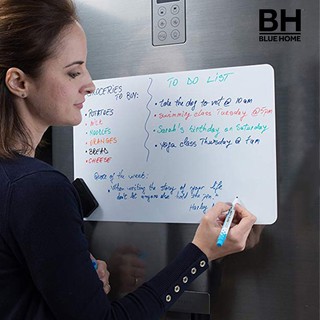 BH
BLUE HOME
GROCERIES
TO BUY:
• POTATOES
• MILK
• NOODLES
• ORANGES
• BREAD
• CHEESE
TO DO LIST
• take the dog to vet @ 10am
• Swimming class Tuesday @ 5pm
• Sarah's birthday on Saturday
• yoga class Thursday @ 7am
Quote of the week:
• When writing the story of your life
don't let anyone else hold the pen"
Harley